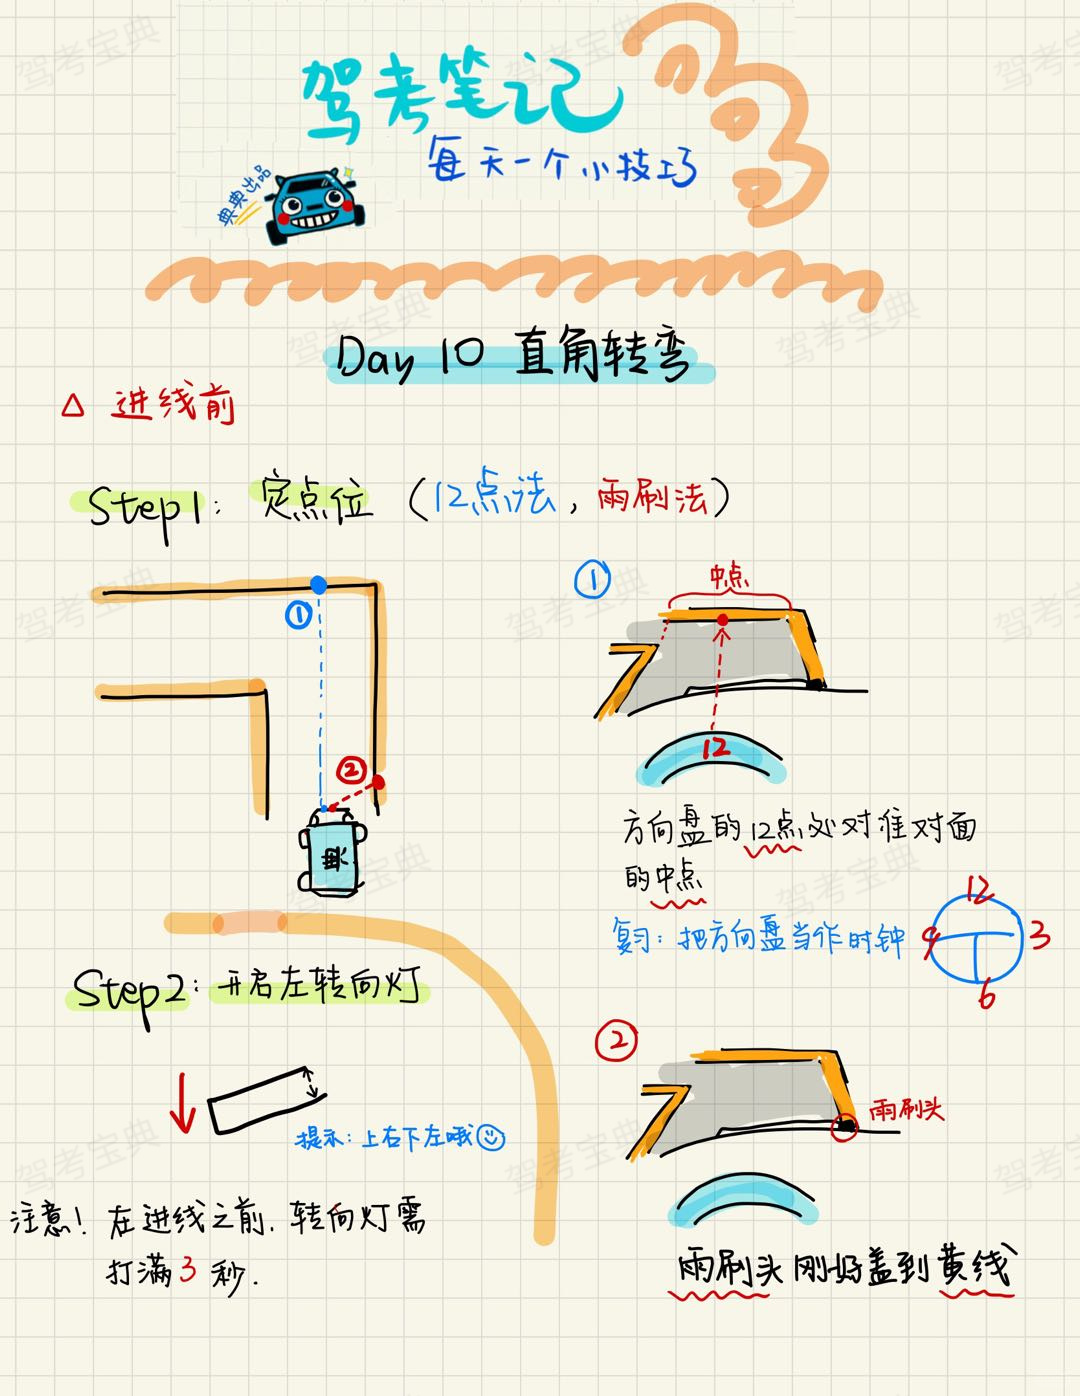 驾考笔记
每天一个小技巧
典典出品
Day 10 直角转弯
△ 进线前
Step1: 定点位 (12点法, 雨刷法)
①
②
典
①
中点
12
方向盘的12点处对准对面
的中点
复习: 把方向盘当作时钟
12
9
3
6
Step2: 开启左转向灯
提示: 上右下左哦
注意! 在进线之前, 转向灯需
打满3秒.
②
雨刷头
雨刷头刚好盖到黄线
驾考宝典